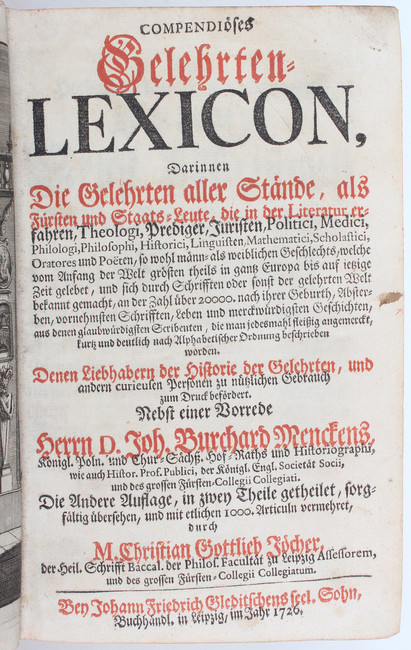 COMPENDIöses
Gelehrten-
LEXICON,
Darinnen
Die Gelehrten aller Stände, als
Fürsten und Staats-Leute, die in der Literatur er-
fahren, Theologi, Prediger, Juristen, Politici, Medici,
Philologi, Philosophi, Historici, Linguisten, Mathematici, Scholastici,
Oratores und Poëten, so wohl männ- als weiblichen Geschlechts, welche
vom Anfang der Welt grösten theils in gantz Europa bis auf ietzige
Zeit gelebet, und sich durch Schrifften oder sonst der gelehrten Welt
bekannt gemacht, an der Zahl über 20000. nach ihrer Geburth, Abster-
ben, vornehmsten Schrifften, Leben und merckwürdigsten Geschichten,
aus denen glaubwürdigsten Scribenten, die man jedesmahl fleißig angemercket,
kurtz und deutlich nach Alphabetischer Ordnung beschrieben
worden.
Denen Liebhabern der Historie der Gelehrten, und
andern curieusen Personen zu nützlichen Gebrauch
zum Druck befördert.
Nebst einer Vorrede
Herrn D. Joh. Burchard Menckens,
Königl. Poln. und Chur-Sächß. Hof-Raths und Historiographi,
wie auch Histor. Prof. Publici, der Königl. Engl. Societät Socii,
und des grossen Fürsten-Collegii Collegiati.
Die Andere Auflage, in zwey Theile getheilet, sorg-
fältig übersehen, und mit etlichen 1000. Articuln vermehret,
durch
M. Christian Gottlieb Jöcher,
der Heil. Schrifft Baccal. der Philos. Facultät zu Leipzig Assessorem,
und des grossen Fürsten-Collegii Collegiatum.
Bey Johann Friedrich Gleditschens seel. Sohn,
Buchhändl. in Leipzig, im Jahr 1726.